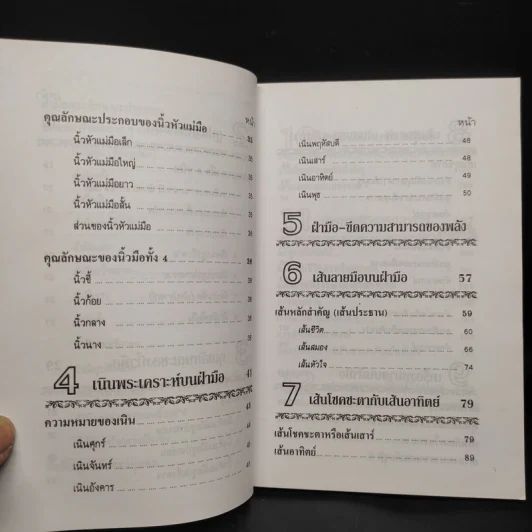 หน้า
คุณลักษณะประกอบของนิ้วหัวแม่มือ
นิ้วหัวแม่มือเล็ก
นิ้วหัวแม่มือใหญ่
นิ้วหัวแม่มือยาว
นิ้วหัวแม่มือสั้น
ส่วนของนิ้วหัวแม่มือ
คุณลักษณะของนิ้วมือทั้ง 4
นิ้วชี้
นิ้วก้อย
นิ้วกลาง
นิ้วนาง
4 เนินพระเคราะห์บนฝ่ามือ 41
ความหมายของเนิน
เนินศุกร์
เนินจันทร์
เนินอังคาร
หน้า
เนินพฤหัสบดี 48
เนินเสาร์ 48
เนินอาทิตย์ 49
เนินพุธ 50
5 ฝ่ามือ-ขีดความสามารถของพลัง
6 เส้นลายมือบนฝ่ามือ 57
เส้นหลักสำคัญ (เส้นประธาน) 59
เส้นชีวิต 60
เส้นสมอง 66
เส้นหัวใจ 74
7 เส้นโชคชะตากับเส้นอาทิตย์ 79
เส้นโชคชะตาหรือเส้นเสาร์ 79
เส้นอาทิตย์ 89